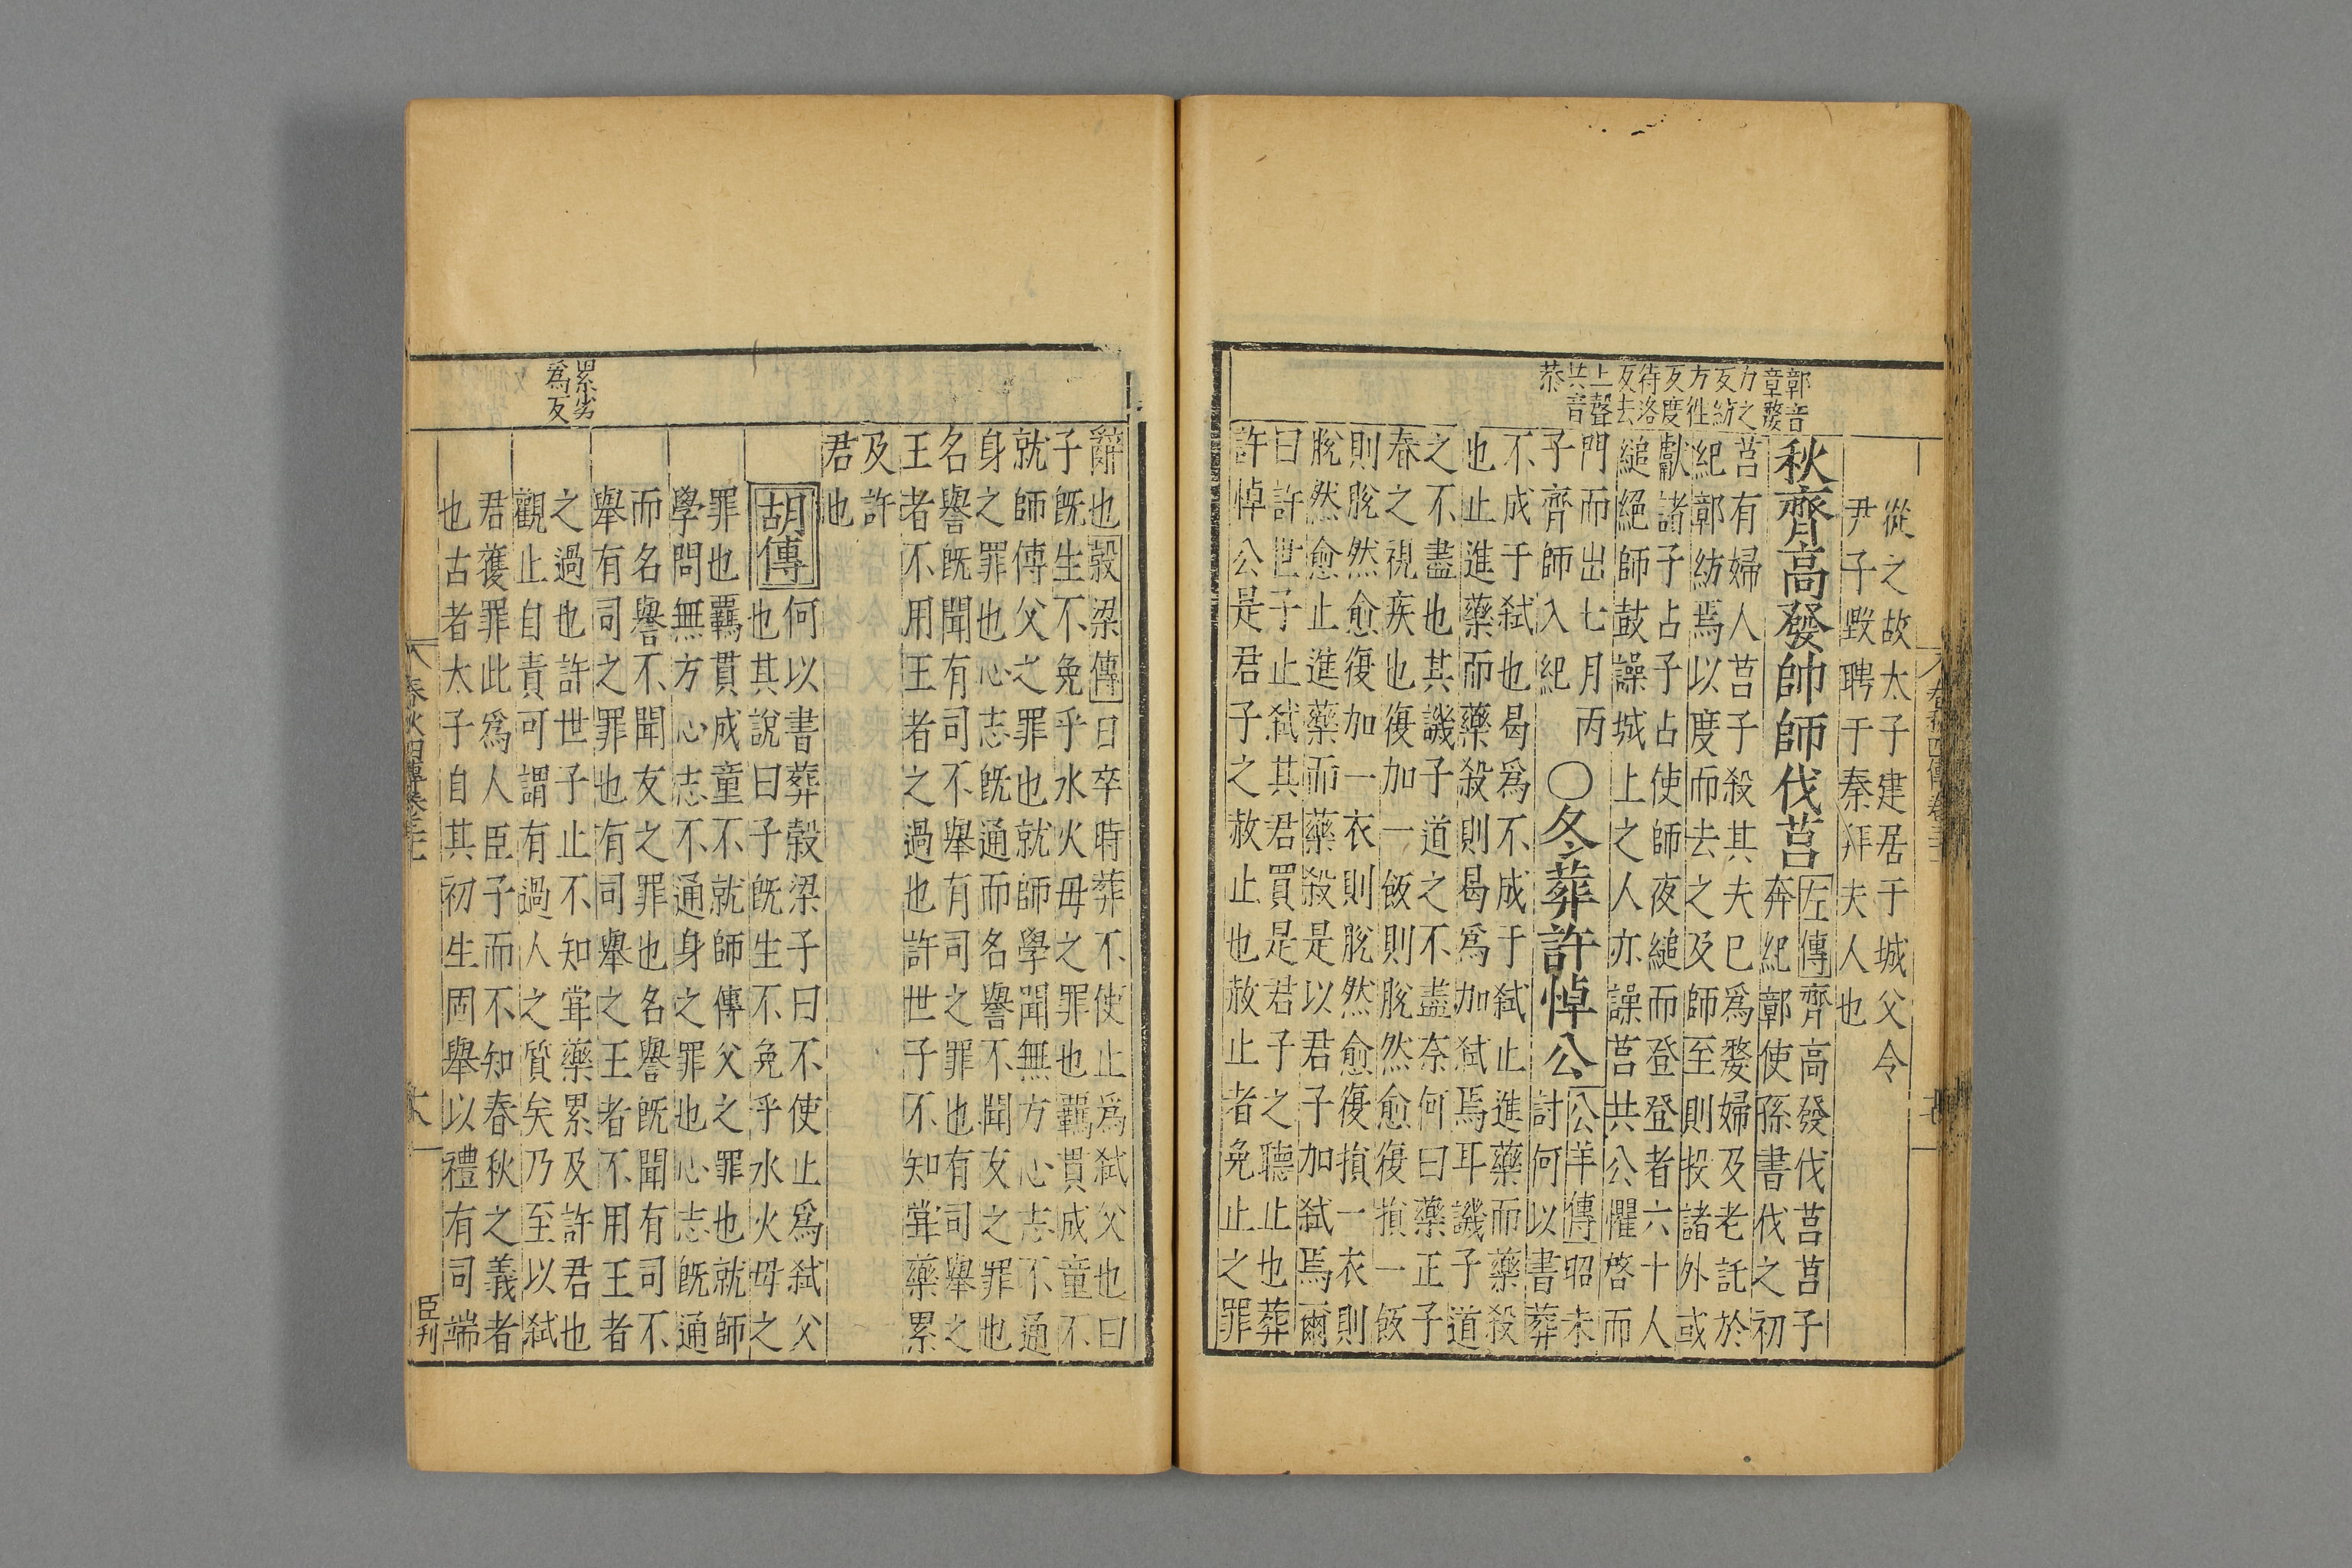 鄣音
章嫠
力之
反紡
方徃
反度
待洛
反去
上聲
共音
恭
從之故太子建居于城父令
尹子瑕聘于秦拜夫人也
秋齊高發帥師伐莒
左傳齊高發伐莒莒子
奔紀鄣使孫書伐之初
莒有婦人莒子殺其夫巳爲嫠婦及老託於
紀鄣紡焉以度而去之及師至則投諸外或
獻諸子占子占使師夜縋而登登者六十人
縋絕師鼓譟城上之人亦譟莒共公懼啓而
門而出七月丙
子齊師入紀
〇冬葬許悼公
公羊傳昭未
討何以書葬
不成于弑也曷爲不成于弑止進藥而藥殺
也止進藥而藥殺則曷爲加弑焉耳譏子道
之不盡也其譏子道之不盡奈何曰藥正子
春之視疾也復加一飯則脫然愈復損一飯
則脫然愈復加一衣則脫然愈復損一衣則
脫然愈止進藥而藥殺是以君子加弑焉爾
曰許世子止弑其君買是君子之聽止也葬
許悼公是君子之赦止也赦止者免止之罪
辭也穀梁傳曰卒時葬不使止爲弑父也曰
子旣生不免乎水火母之罪也羈貫成童不
就師傅父之罪也就師學聞無方心志不通
身之罪也心志旣通而名譽不聞友之罪也
名譽旣聞有司不舉有司之罪也有司舉之
王者不用王者之過也許世子不知甞藥累
及許
君也
胡傳
何以書葬穀梁子曰不使止爲弑父
也其說曰子旣生不免乎水火母之
罪也羈貫成童不就師傅父之罪也就師
學問無方心志不通身之罪也心志旣通
而名譽不聞友之罪也名譽旣聞有司不
舉有司之罪也有司舉之王者不用王者
之過也許世子止不知甞藥累及許君也
觀止自責可謂有過人之質矣乃至以弑
君獲罪此爲人臣子而不知春秋之義者
也古者太子自其初生固舉以禮有司端
累劣
爲反
春秋四傳卷
臣刊